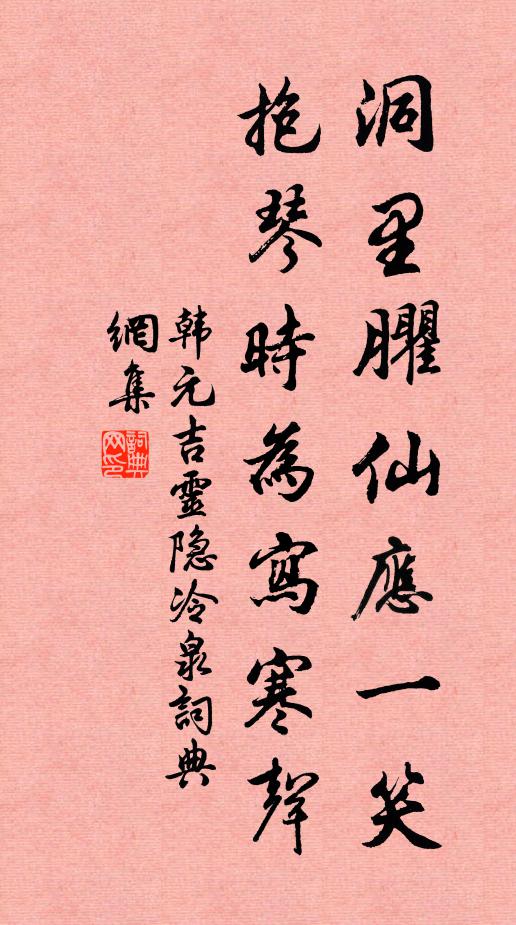 洞里臞仙應一笑
抱琴時為寫寒聲
韩元吉靈隐冷泉詞典
網集
詞典
网印